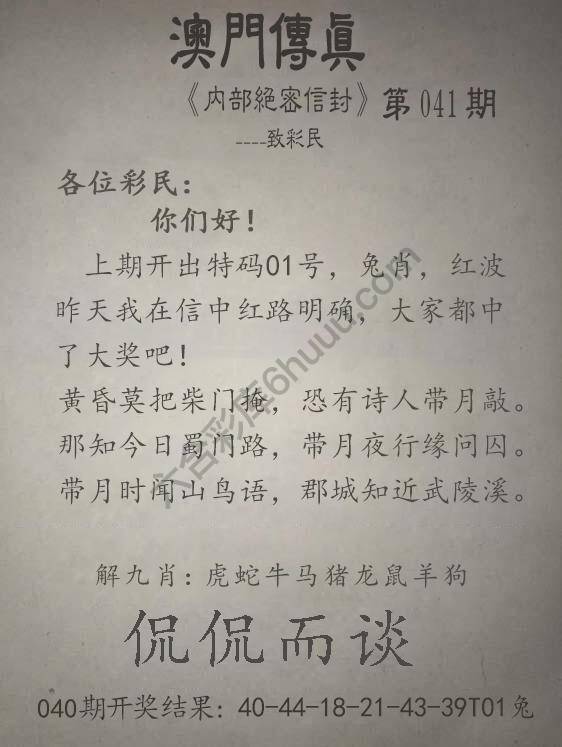 澳門傳真
《内部絕密信封》第041期
----致彩民
各位彩民：
你们好！
上期开出特码01号，兔肖，红波
昨天我在信中红路明确，大家都中
了大奖吧！
黄昏莫把柴门掩，恐有诗人带月敲。
那知今日蜀门路，带月夜行缘问囚。
带月时闻山鸟语，郡城知近武陵溪。
解九肖：虎蛇牛马猪龙鼠羊狗
侃侃而谈
040期开奖结果：40-44-18-21-43-39T01兔
六合彩库6huuu.com